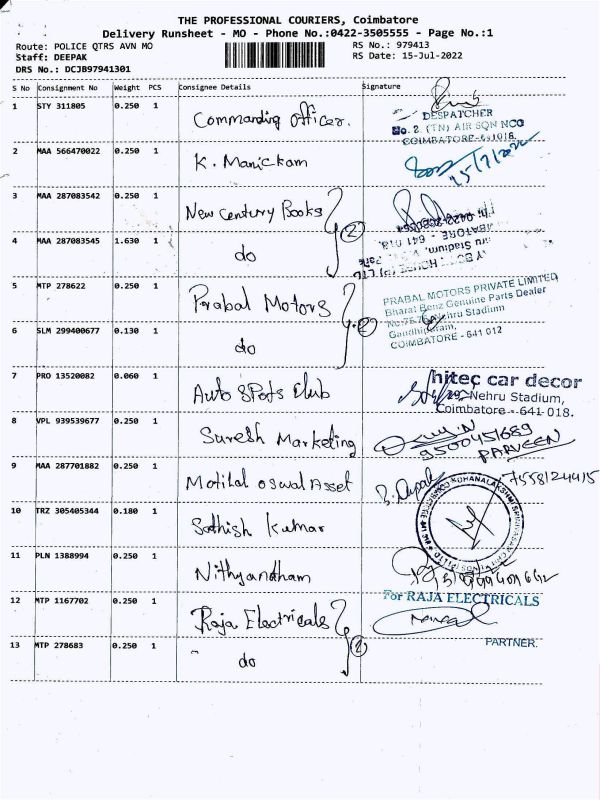 THE PROFESSIONAL COURIERS, Coimbatore
Delivery Runsheet - MO - Phone No.:0422-3505555 - Page No.:1
Route: POLICE QTRS AVN MO RS No.: 979413
Staff: DEEPAK RS Date: 15-Jul-2022
DRS No.: DCJB97941301
S No Consignment No Weight PCS Consignee Details Signature
1 STY 311805 0.250 1 Commanding officer.
DESPATCHER
No. 2. (TN) AIR SQN NCC
COIMBATORE-641018.
2 MAA 566470022 0.250 1 K. Manickam 15/7/2022
3 MAA 287083542 0.250 1 New Century Books
2
4 MAA 287083545 1.630 1 do
5 MTP 278622 0.250 1 Prabal Motors
PRABAL MOTORS PRIVATE LIMITED
Bharat Benz Genuine Parts Dealer
Nehru Stadium
Gandhipuram,
COIMBATORE - 641 012
2
6 SLM 299400677 0.130 1 do
7 PRO 13520082 0.060 1 Auto Spots Club
hitec car decor
29, Nehru Stadium,
Coimbatore - 641 018.
8 VPL 939539677 0.250 1 Suresh Marketing
9500451689
PARVEEN
9 MAA 287701882 0.250 1 Motilal oswal Asset
7558124415
10 TRZ 305405344 0.180 1 Sathish Kumar
11 PLN 1388994 0.250 1 Nithyandham
12 MTP 1167702 0.250 1 Raja Electricals
For RAJA ELECTRICALS
PARTNER.
2
13 MTP 278683 0.250 1 do